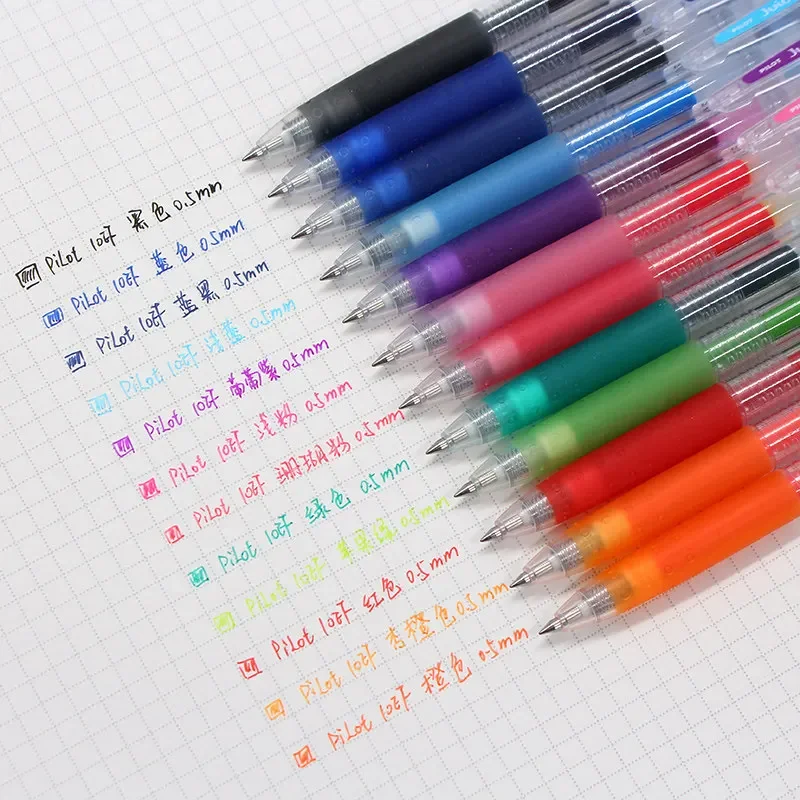 PiLot 10EF 黑色 0.5mm
PiLot 10EF 蓝色 0.5mm
PiLot 10EF 蓝黑 0.5mm
PiLot 10EF 浅蓝 0.5mm
PiLot 10EF 葡萄紫 0.5mm
PiLot 10EF 浅粉 0.5mm
PiLot 10EF 珊瑚粉 0.5mm
PiLot 10EF 绿色 0.5mm
PiLot 10EF 苹果绿 0.5mm
PiLot 10EF 红色 0.5mm
PiLot 10EF 杏橙色 0.5mm
PiLot 10EF 橙色 0.5mm
PILOT
PILOT